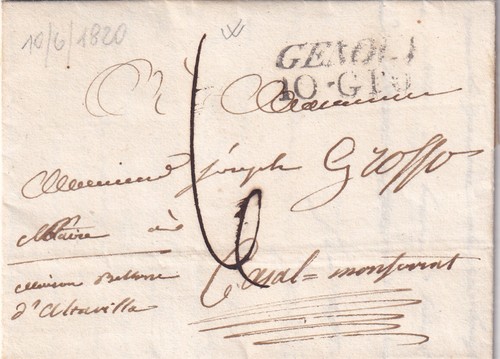 10/6/1820
GENOVA
10·GIU
A Monsieur
Monsieur Joseph Grosso
Notaire à
6
Casal=monferrat
maison
d'Altavilla